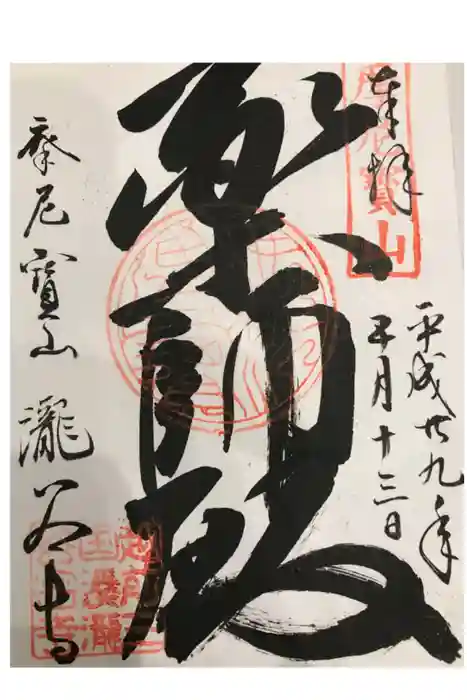 奉拝
摩尼寶山
平成廿九年
五月十三日
薬師殿
摩尼寶山 瀧谷寺